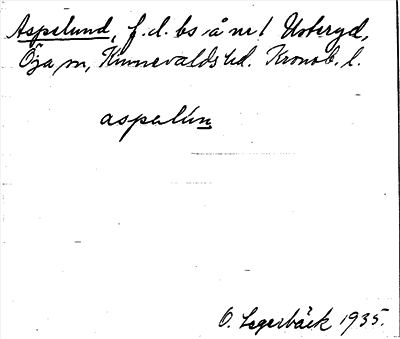 Aspelund, f.d. bs å nr 1 Usteryd,
Öja sn, Kinnevalds hd. Kronob. l.
aspalún
O. Lagerbäck 1935.